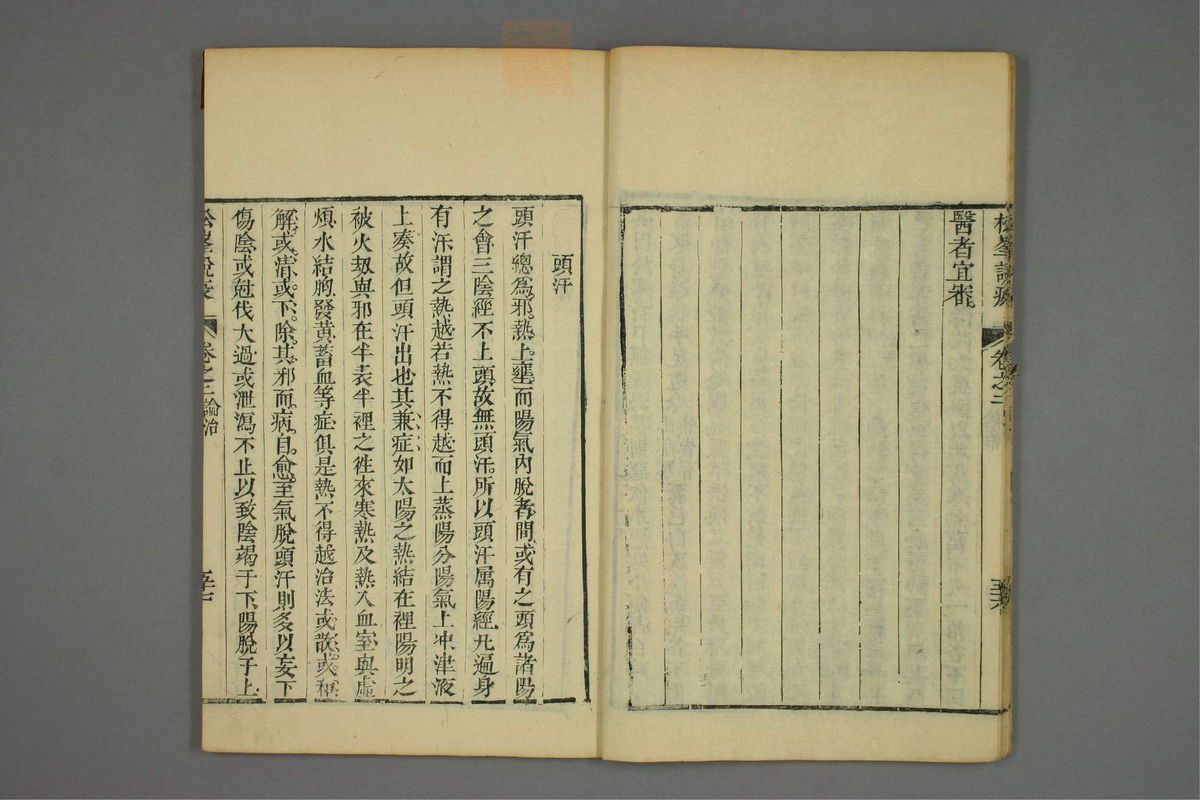 松峯說疫 卷之二 論治
醫者宜審
頭汗
頭汗總爲邪熱上壅而陽氣內脫者間或有之頭爲諸陽
之會三陰經不上頭故無頭汗所以頭汗屬陽經凡遍身
有汗謂之熱越若熱不得越而上蒸陽分陽氣上冲津液
上奏故但頭汗出也其兼症如太陽之熱結在裡陽明之
被火刼與邪在半表半裡之徃來寒熱及熱入血室與虛
煩水結胸發黃蓄血等症俱是熱不得越治法或散或和
解或清或下除其邪而病自愈至氣脫頭汗則多以妄下
傷陰或尅伐大過或泄瀉不止以致陰竭于下陽脫于上
松峯說疫 卷之二 論治